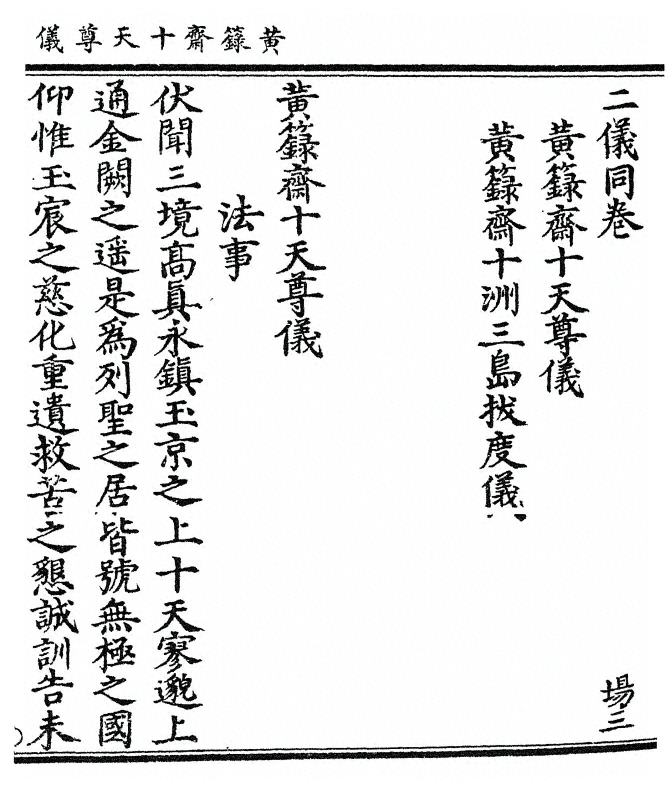 黃籙齋十天尊儀
二儀同卷 場三
黃籙齋十天尊儀
黃籙齋十洲三島拔度儀
黃籙齋十天尊儀
法事
伏聞三境高真永鎮玉京之上十天寥邈上
通金闕之遥是爲列聖之居皆號無極之國
仰惟玉宸之慈化重遺救苦之懇誠訓告未